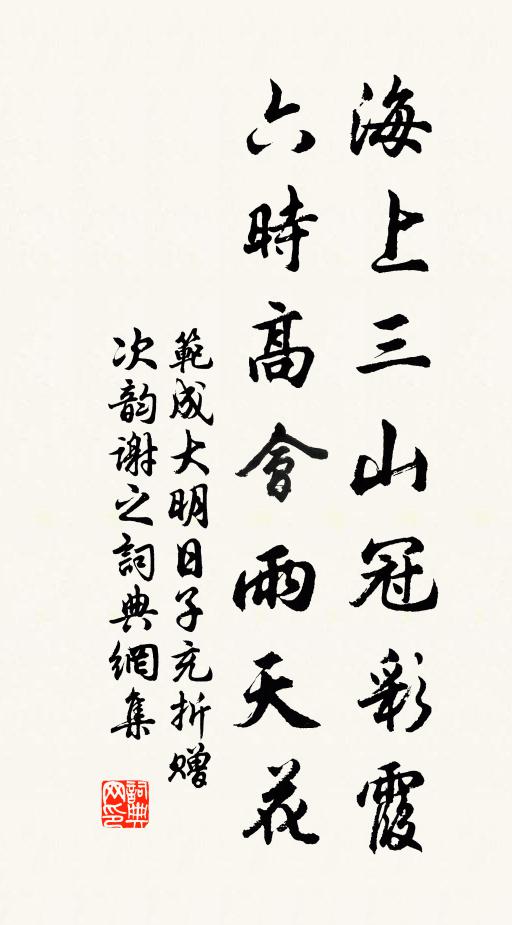 海上三山冠彩霞
六時高會雨天花
範成大明日子充折贈
次韵謝之詞典網集
詞典網印